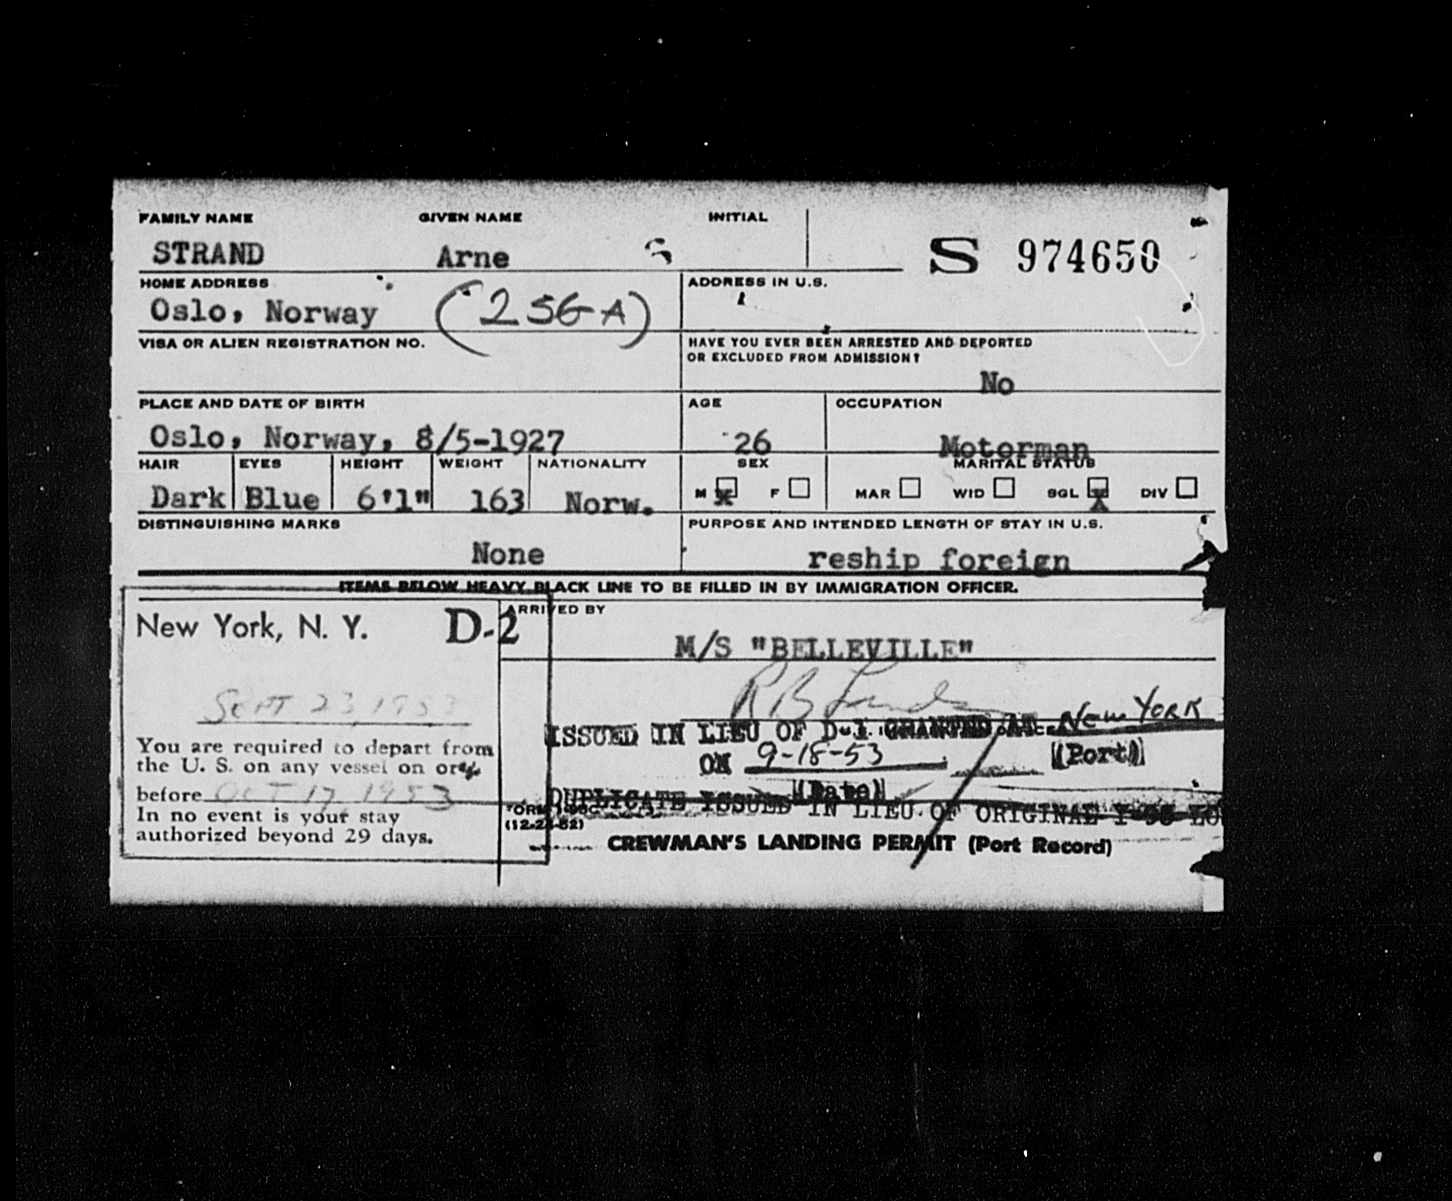 FAMILY NAME GIVEN NAME INITIAL
STRAND Arne S 974650
HOME ADDRESS ADDRESS IN U.S.
Oslo, Norway (256-A)
VISA OR ALIEN REGISTRATION NO. HAVE YOU EVER BEEN ARRESTED AND DEPORTED
OR EXCLUDED FROM ADMISSION?
No
PLACE AND DATE OF BIRTH AGE OCCUPATION
Oslo, Norway, 8/5-1927 26 Motorman
HAIR EYES HEIGHT WEIGHT NATIONALITY SEX MARITAL STATUS
Dark Blue 6'1" 163 Norw. M X F MAR WID SGL X DIV
DISTINGUISHING MARKS PURPOSE AND INTENDED LENGTH OF STAY IN U.S.
None reship foreign
ITEMS BELOW HEAVY BLACK LINE TO BE FILLED IN BY IMMIGRATION OFFICER.
ARRIVED BY
New York, N. Y. D-2
M/S "BELLEVILLE"
SEPT 23, 1953
ISSUED IN LIEU OF D-1 GRANTED AT New YORK
You are required to depart from
the U. S. on any vessel on or
ON 9-18-53 (Port)
(Date)
before OCT 17, 1953
DUPLICATE ISSUED IN LIEU OF ORIGINAL
In no event is your stay
authorized beyond 29 days.
CREWMAN'S LANDING PERMIT (Port Record)